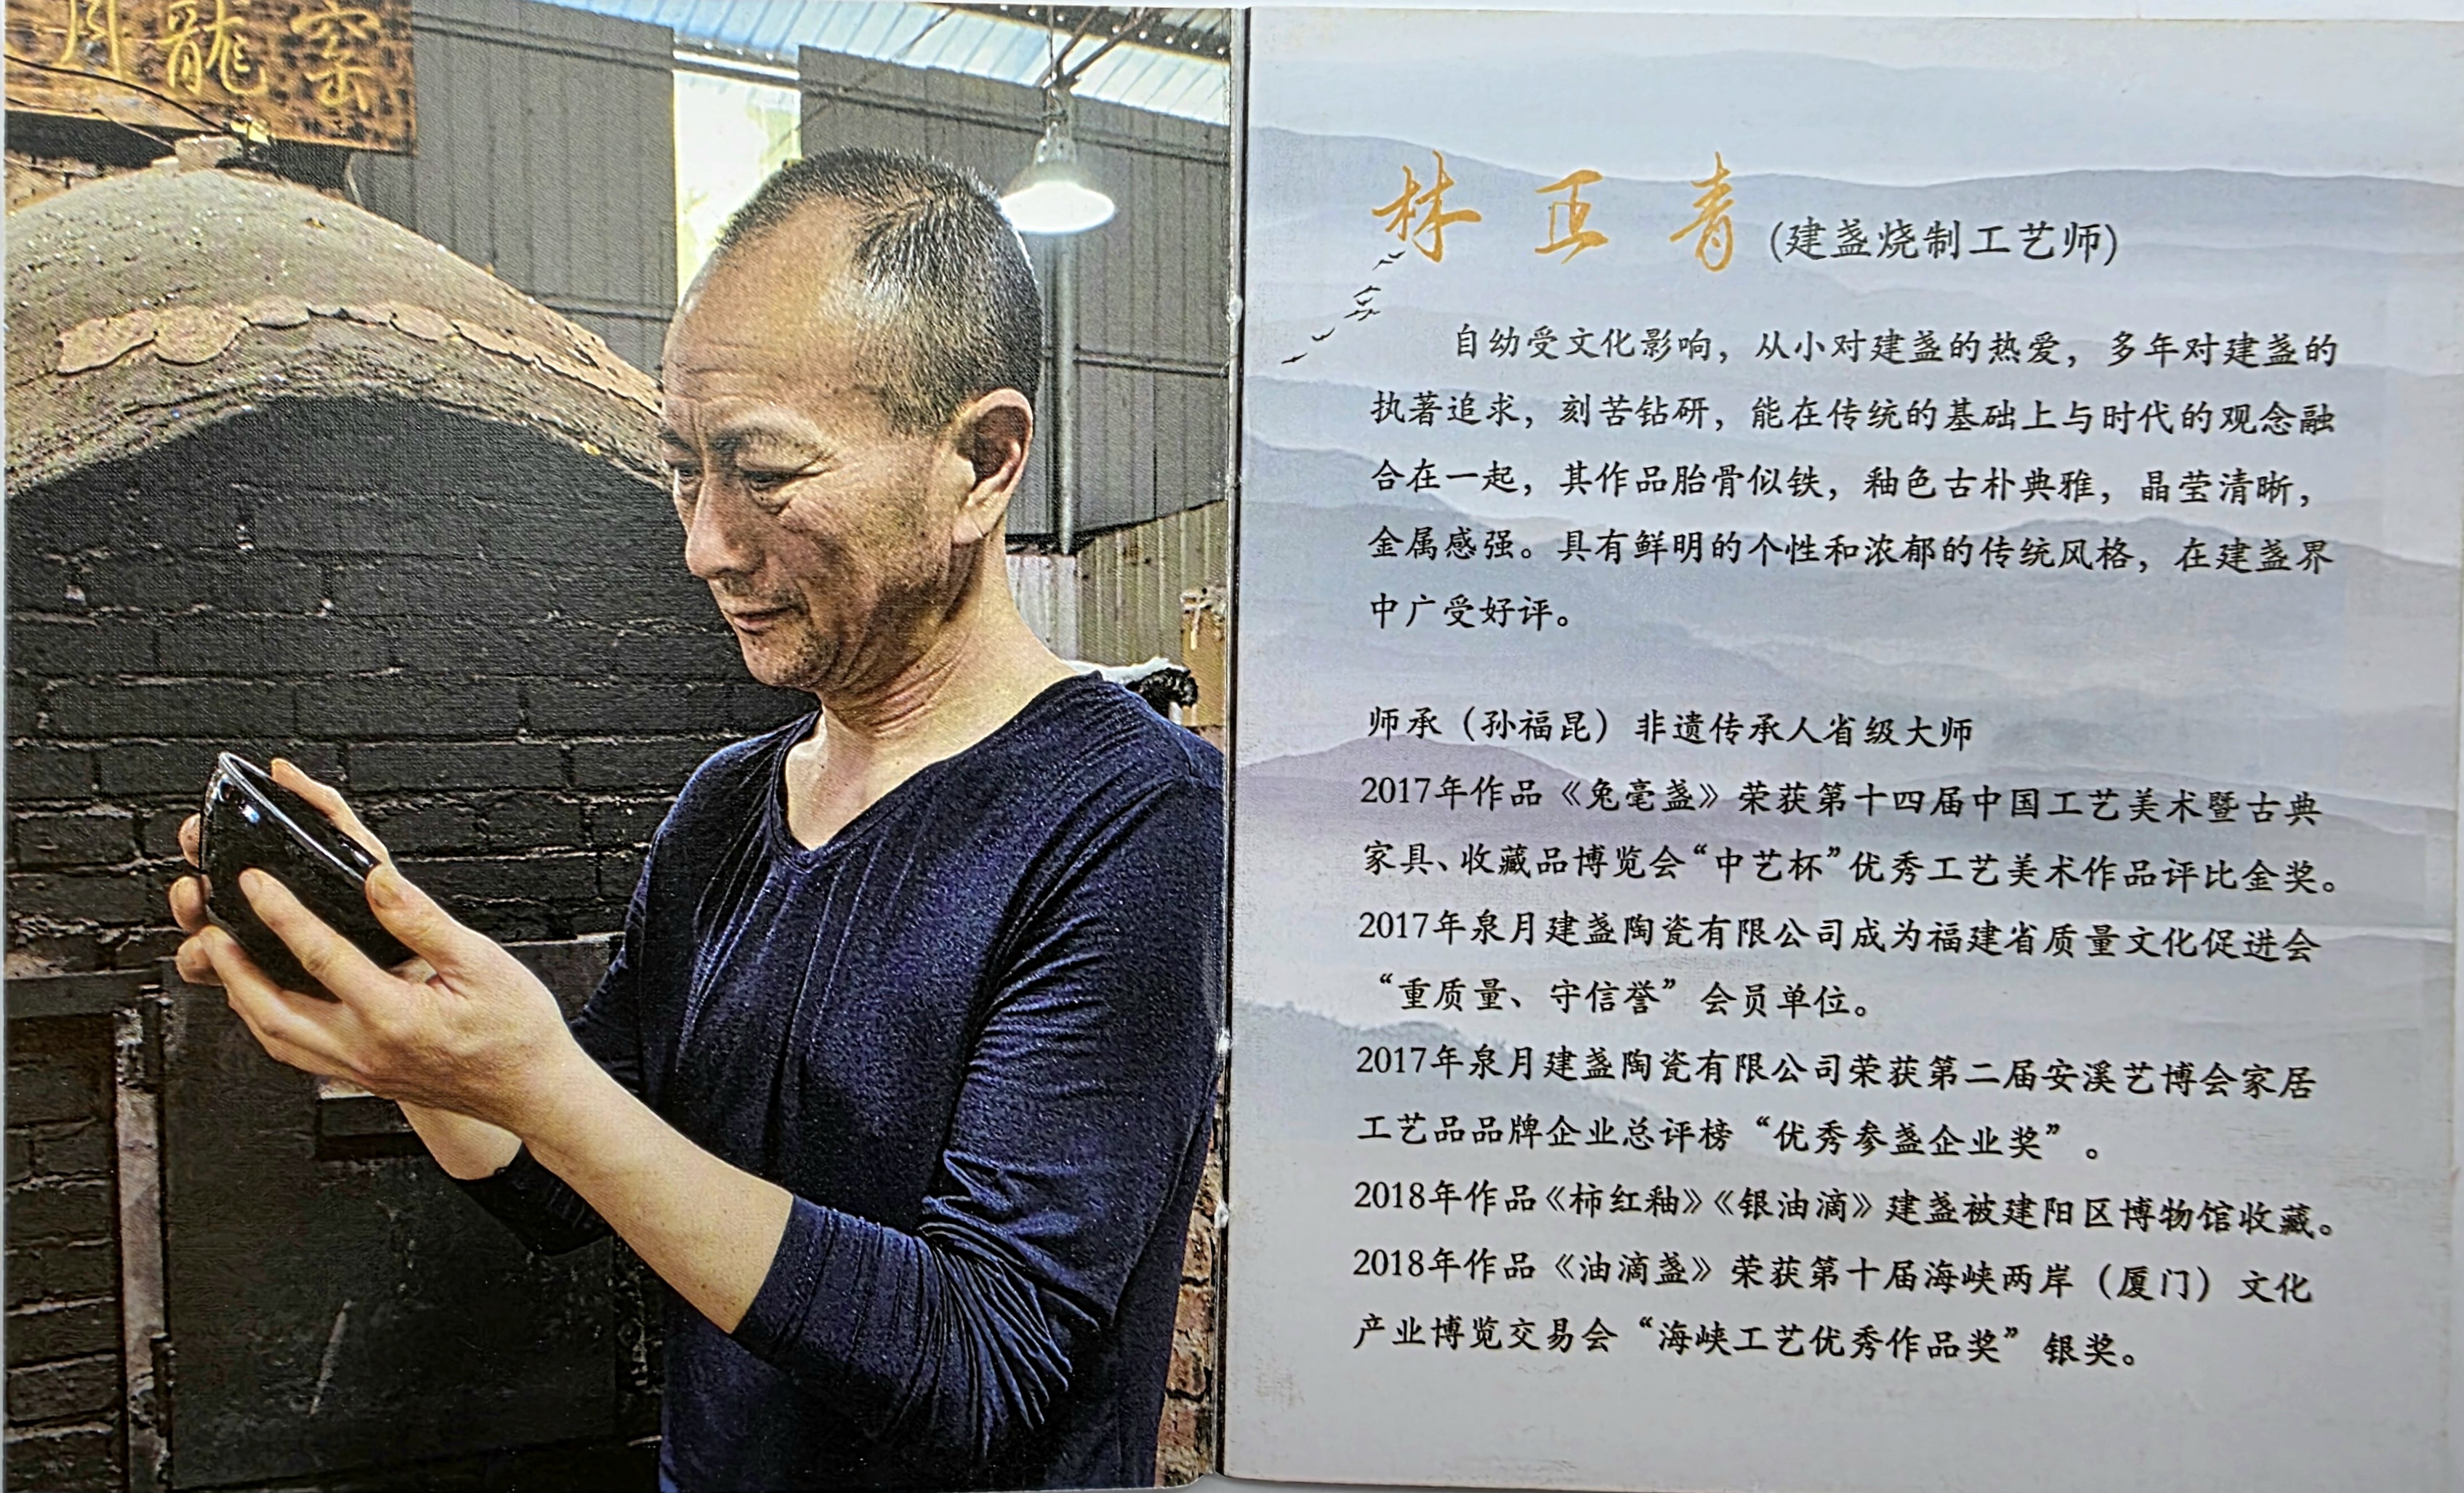 月龍窯
林正青 (建盏烧制工艺师)
自幼受文化影响，从小对建盏的热爱，多年对建盏的
执著追求，刻苦钻研，能在传统的基础上与时代的观念融
合在一起，其作品胎骨似铁，釉色古朴典雅，晶莹清晰，
金属感强。具有鲜明的个性和浓郁的传统风格，在建盏界
中广受好评。
师承（孙福昆）非遗传承人省级大师
2017年作品《兔毫盏》荣获第十四届中国工艺美术暨古典
家具、收藏品博览会“中艺杯”优秀工艺美术作品评比金奖。
2017年泉月建盏陶瓷有限公司成为福建省质量文化促进会
“重质量、守信誉”会员单位。
2017年泉月建盏陶瓷有限公司荣获第二届安溪艺博会家居
工艺品品牌企业总评榜“优秀参盏企业奖”。
2018年作品《柿红釉》《银油滴》建盏被建阳区博物馆收藏。
2018年作品《油滴盏》荣获第十届海峡两岸（厦门）文化
产业博览交易会“海峡工艺优秀作品奖”银奖。